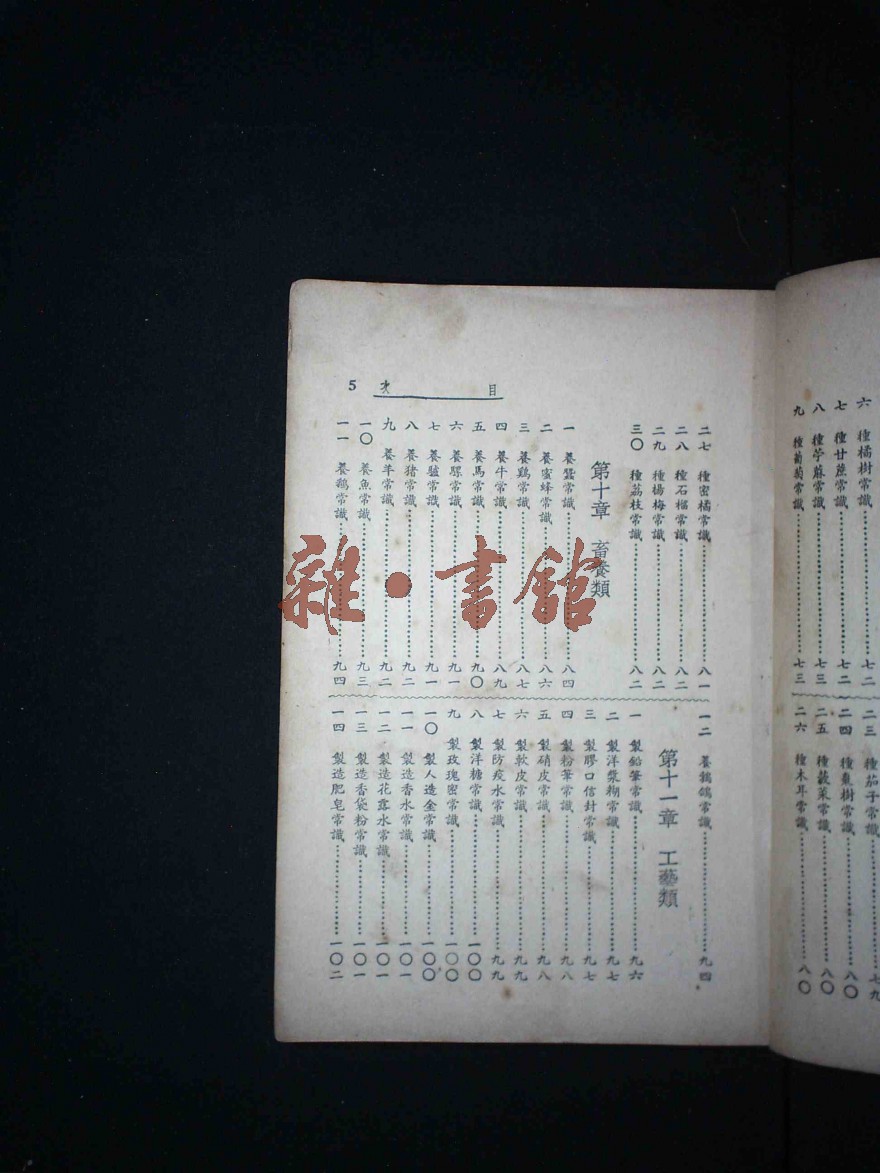 六 種橘樹常識……七二
七 種甘蔗常識……七二
八 種苧蔴常識……七三
九 種葡萄常識……七三
二三 種茄子常識……七九
二四 種樹常識……八〇
二五 種菜常識……八〇
二六 種木耳常識……八〇
目 次 5
二七 種密橘常識……八一
二八 種石榴常識……八二
二九 種楊梅常識……八二
三〇 種荔枝常識……八二
第十章 畜養類
一 養蠶常識……八四
二 養蜜蜂常識……八六
三 養鷄常識……八七
四 養牛常識……八九
五 養馬常識……九〇
六 養騾常識……九一
七 養驢常識……九一
八 養猪常識……九二
九 養羊常識……九二
一〇 養魚常識……九三
一一 養鵝常識……九四
一二 養鴿常識……九四
第十一章 工藝類
一 製鉛筆常識……九六
二 製洋漿糊常識……九七
三 製膠口信封常識……九七
四 製粉筆常識……九八
五 製硝皮常識……九八
六 製軟皮常識……九九
七 製防疫水常識……九九
八 製洋糖常識……一〇〇
九 製玫瑰密常識……一〇〇
一〇 製人造金常識……一〇〇
一一 製造香水常識……一〇一
一二 製造花露水常識……一〇一
一三 製造香袋粉常識……一〇一
一四 製造肥皂常識……一〇二
雜·書館